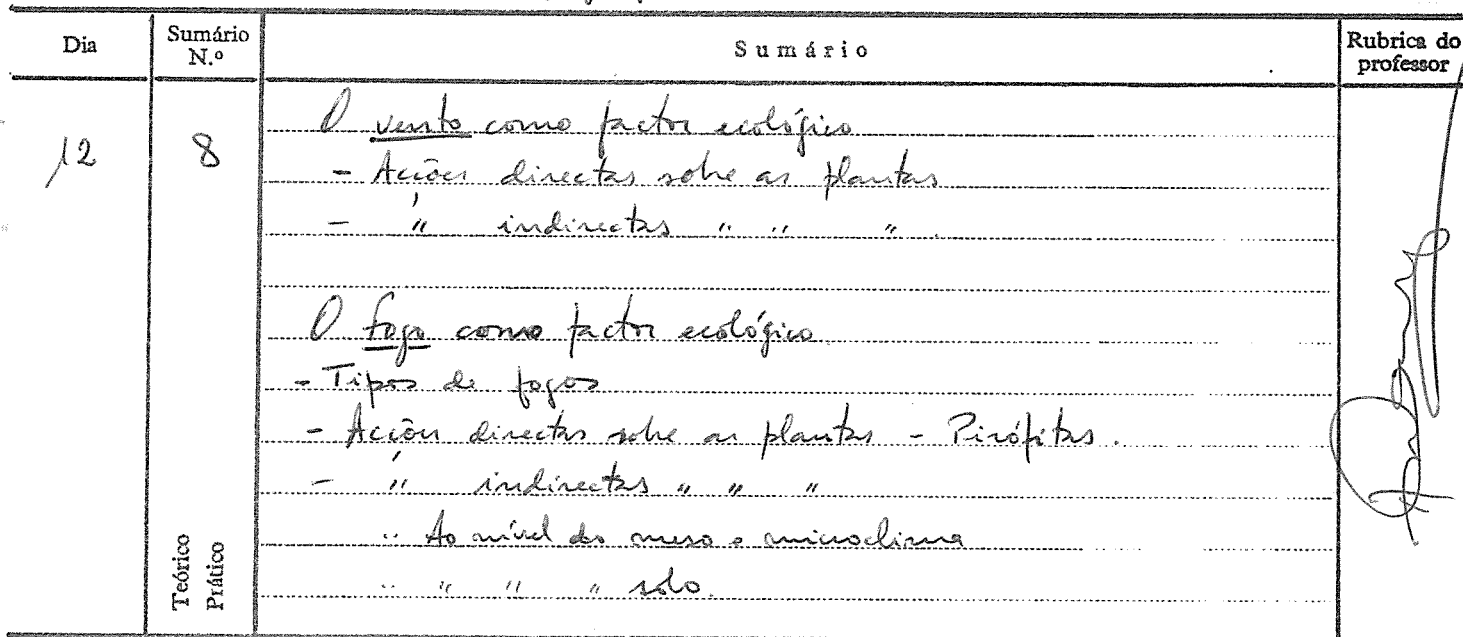 Dia
Sumário N.º
Sumário
Rubrica do professor
12
8
O vento como factor ecológico
- Acções directas sobre as plantas
- " indirectas " " " .
O fogo como factor ecológico
- Tipos de fogos
- Acções directas sobre as plantas - Pirófitas.
- " indirectas " " "
.. Ao nível do meso e microclima
.. " " " solo.
Teórico
Prático